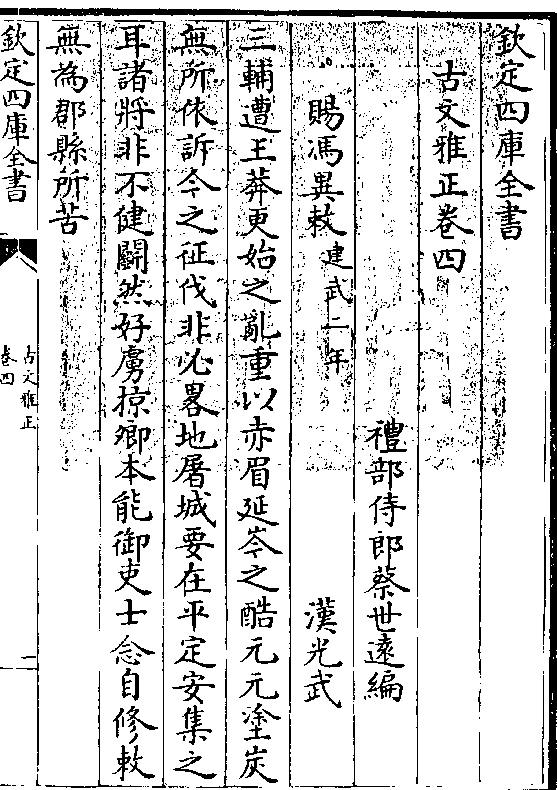 欽定四庫全書
古文雅正卷四
禮部侍郎蔡世遠編
賜馮異敕建武二年 漢光武
三輔遭王莽更始之亂重以赤眉延岑之酷元元塗炭
無所依訴今之征伐非必畧地屠城要在平定安集之
耳諸將非不健鬭然好虜掠卿本能御吏士念自修敕
無為郡縣所苦
欽定四庫全書
古文雅正
卷四
一